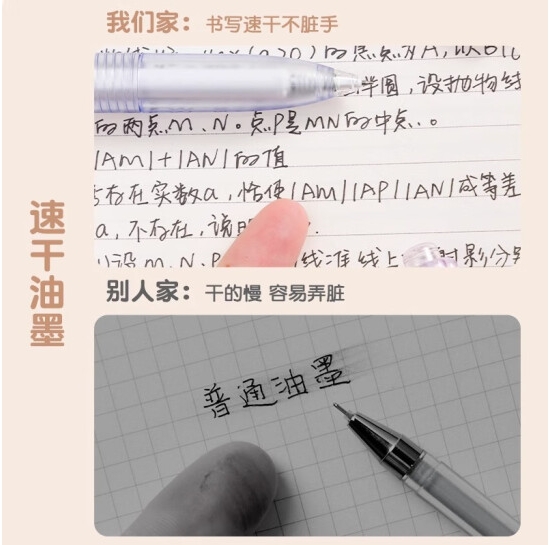 我们家：书写速干不脏手
半圆，设抛物线
的两点M、N。点P是MN的中点。
|AM|+|AN|的值
存在实数a，恰使|AM||AP||AN|成等差
a，不存在，说明
设M、N、P 线准线上 射影分别
速干油墨
别人家：干的慢 容易弄脏
普通油墨